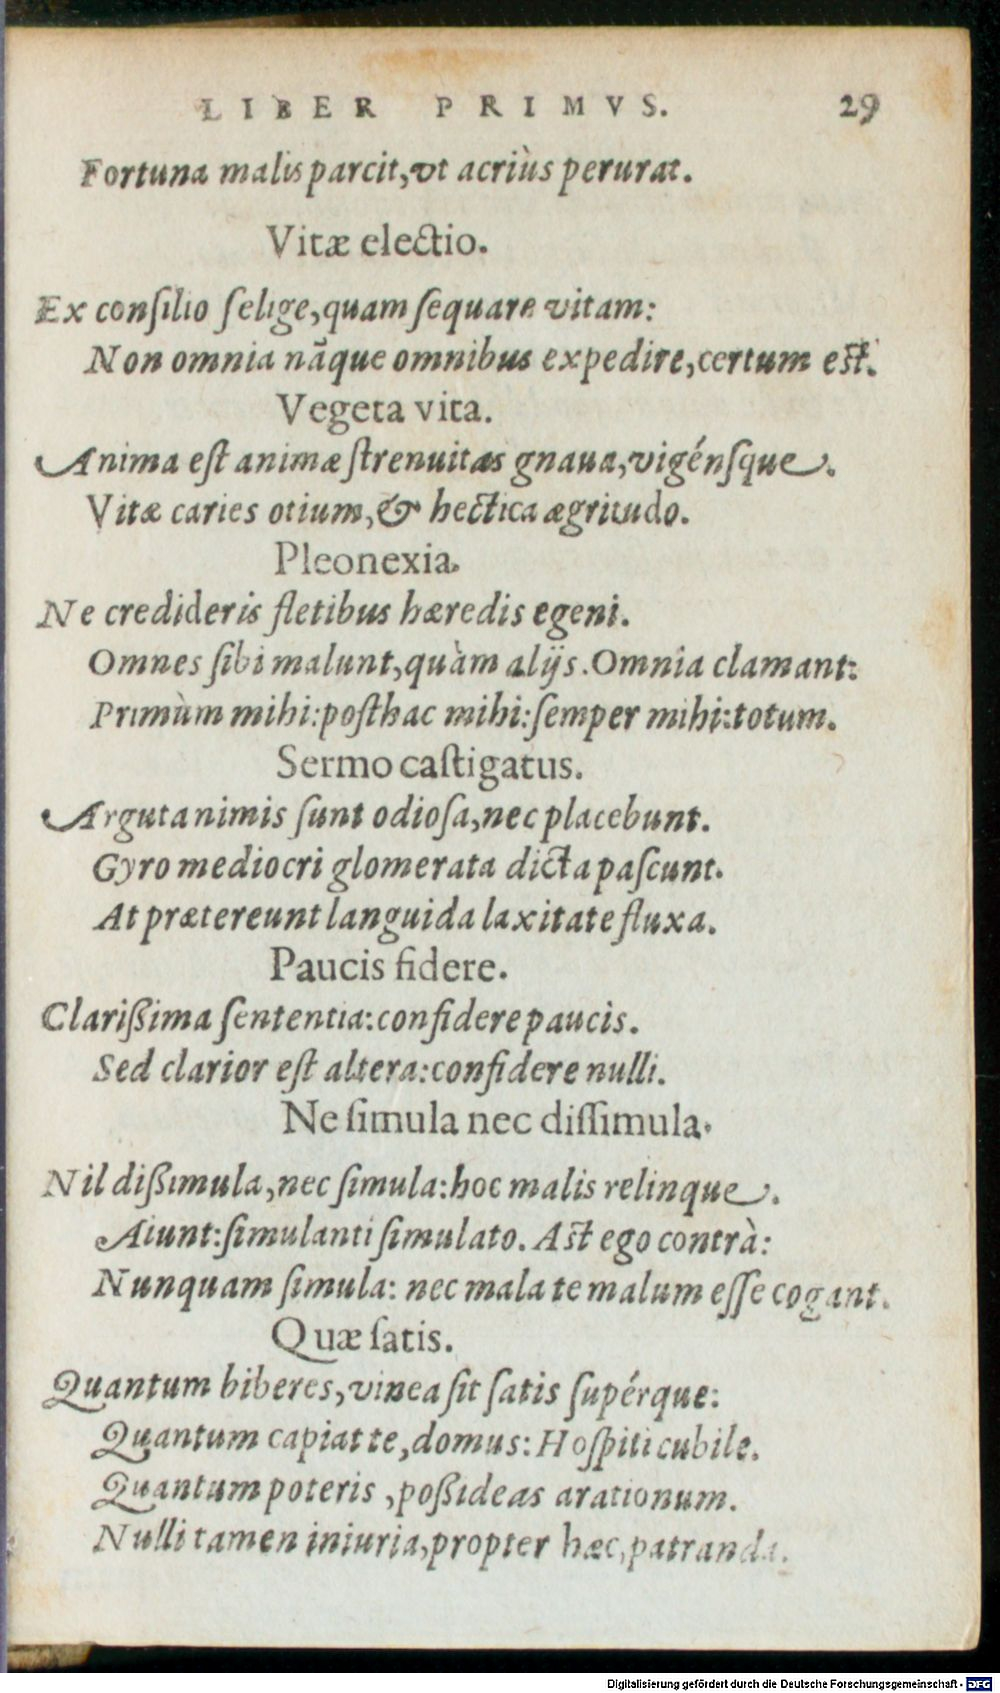 LIBER PRIMVS. 29
Fortuna malis parcit, vt acriùs perurat.
Vitæ electio.
Ex consilio selige, quam sequare vitam:
Non omnia nãque omnibus expedire, certum est.
Vegeta vita.
Anima est animæ strenuitas gnaua, vigénsque.
Vitæ caries otium, & hectica ægritudo.
Pleonexia.
Ne credideris fletibus hæredis egeni.
Omnes sibi malunt, quàm alijs. Omnia clamant:
Primùm mihi: posthac mihi: semper mihi: totum.
Sermo castigatus.
Arguta nimis sunt odiosa, nec placebunt.
Gyro mediocri glomerata dicta pascunt.
At prætereunt languida laxitate fluxa.
Paucis fidere.
Clarißima sententia: confidere paucis.
Sed clarior est altera: confidere nulli.
Ne simula nec dissimula.
Nil dißimula, nec simula: hoc malis relinque.
Aiunt: simulanti simulato. Ast ego contrà:
Nunquam simula: nec mala te malum esse cogant.
Quæ satis.
Quantum biberes, vinea sit satis supérque:
Quantum capiat te, domus: Hospiti cubile.
Quantum poteris, poßideas arationum.
Nulli tamen iniuria, propter hæc, patranda.
Digitalisierung gefördert durch die Deutsche Forschungsgemeinschaft - DFG